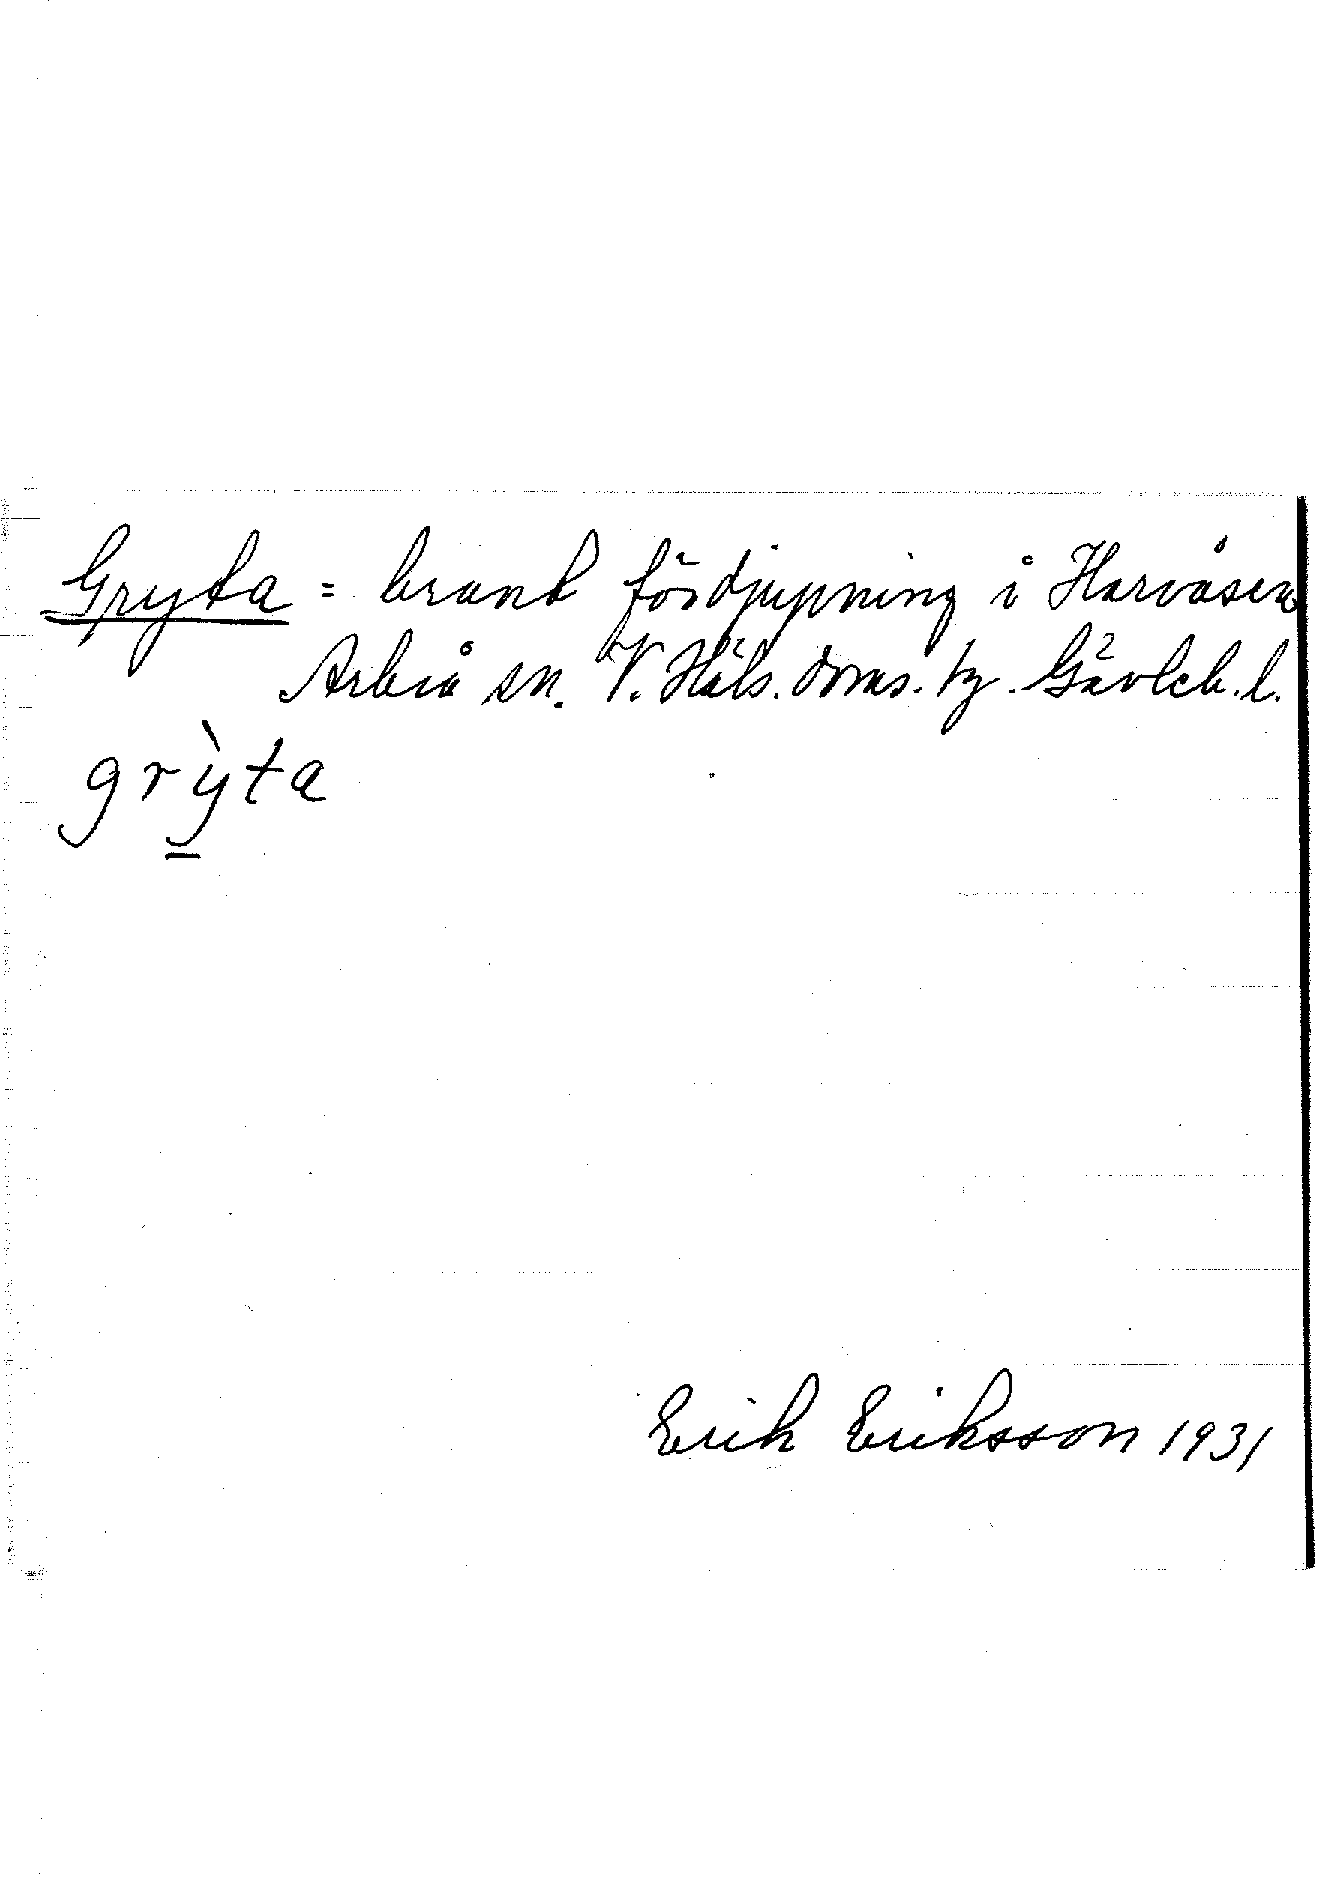 Gryta = brant fördjupning i Harvåsen
Arbrå sn. V. Häls. doms. tg. Gävleb. l.
grỳta
Erik Eriksson 1931